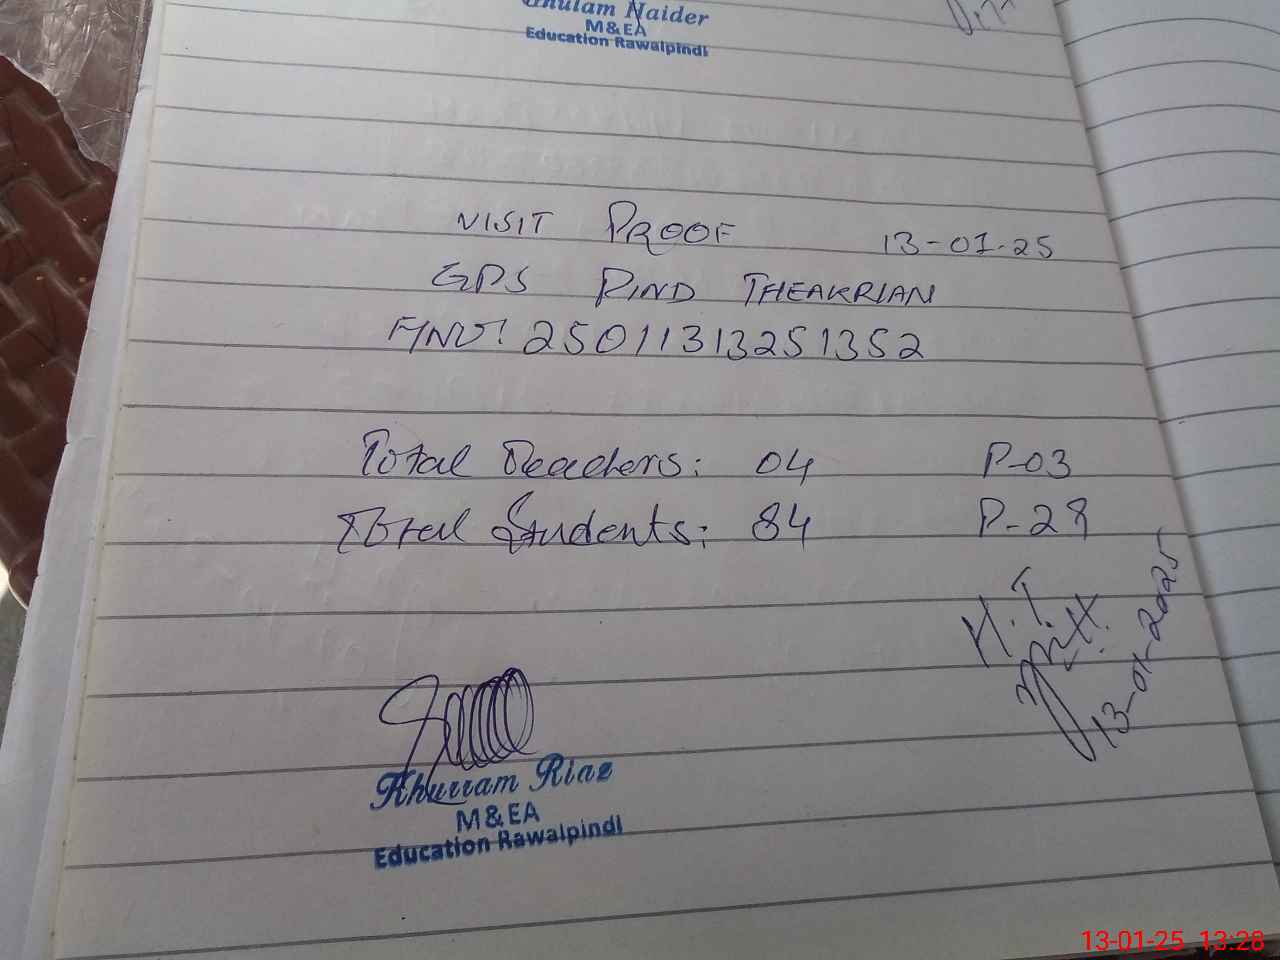 Ghulam Haider
M&EA
Education Rawalpindi
VISIT PROOF 13-01-25
GPS PIND THEAKRIAN
25011313251352
Total Teachers: 04 P-03
Total Students: 84 P-28
H.T.
13-01-2025
Khurram Riaz
M&EA
Education Rawalpindi
13-01-25 13:28